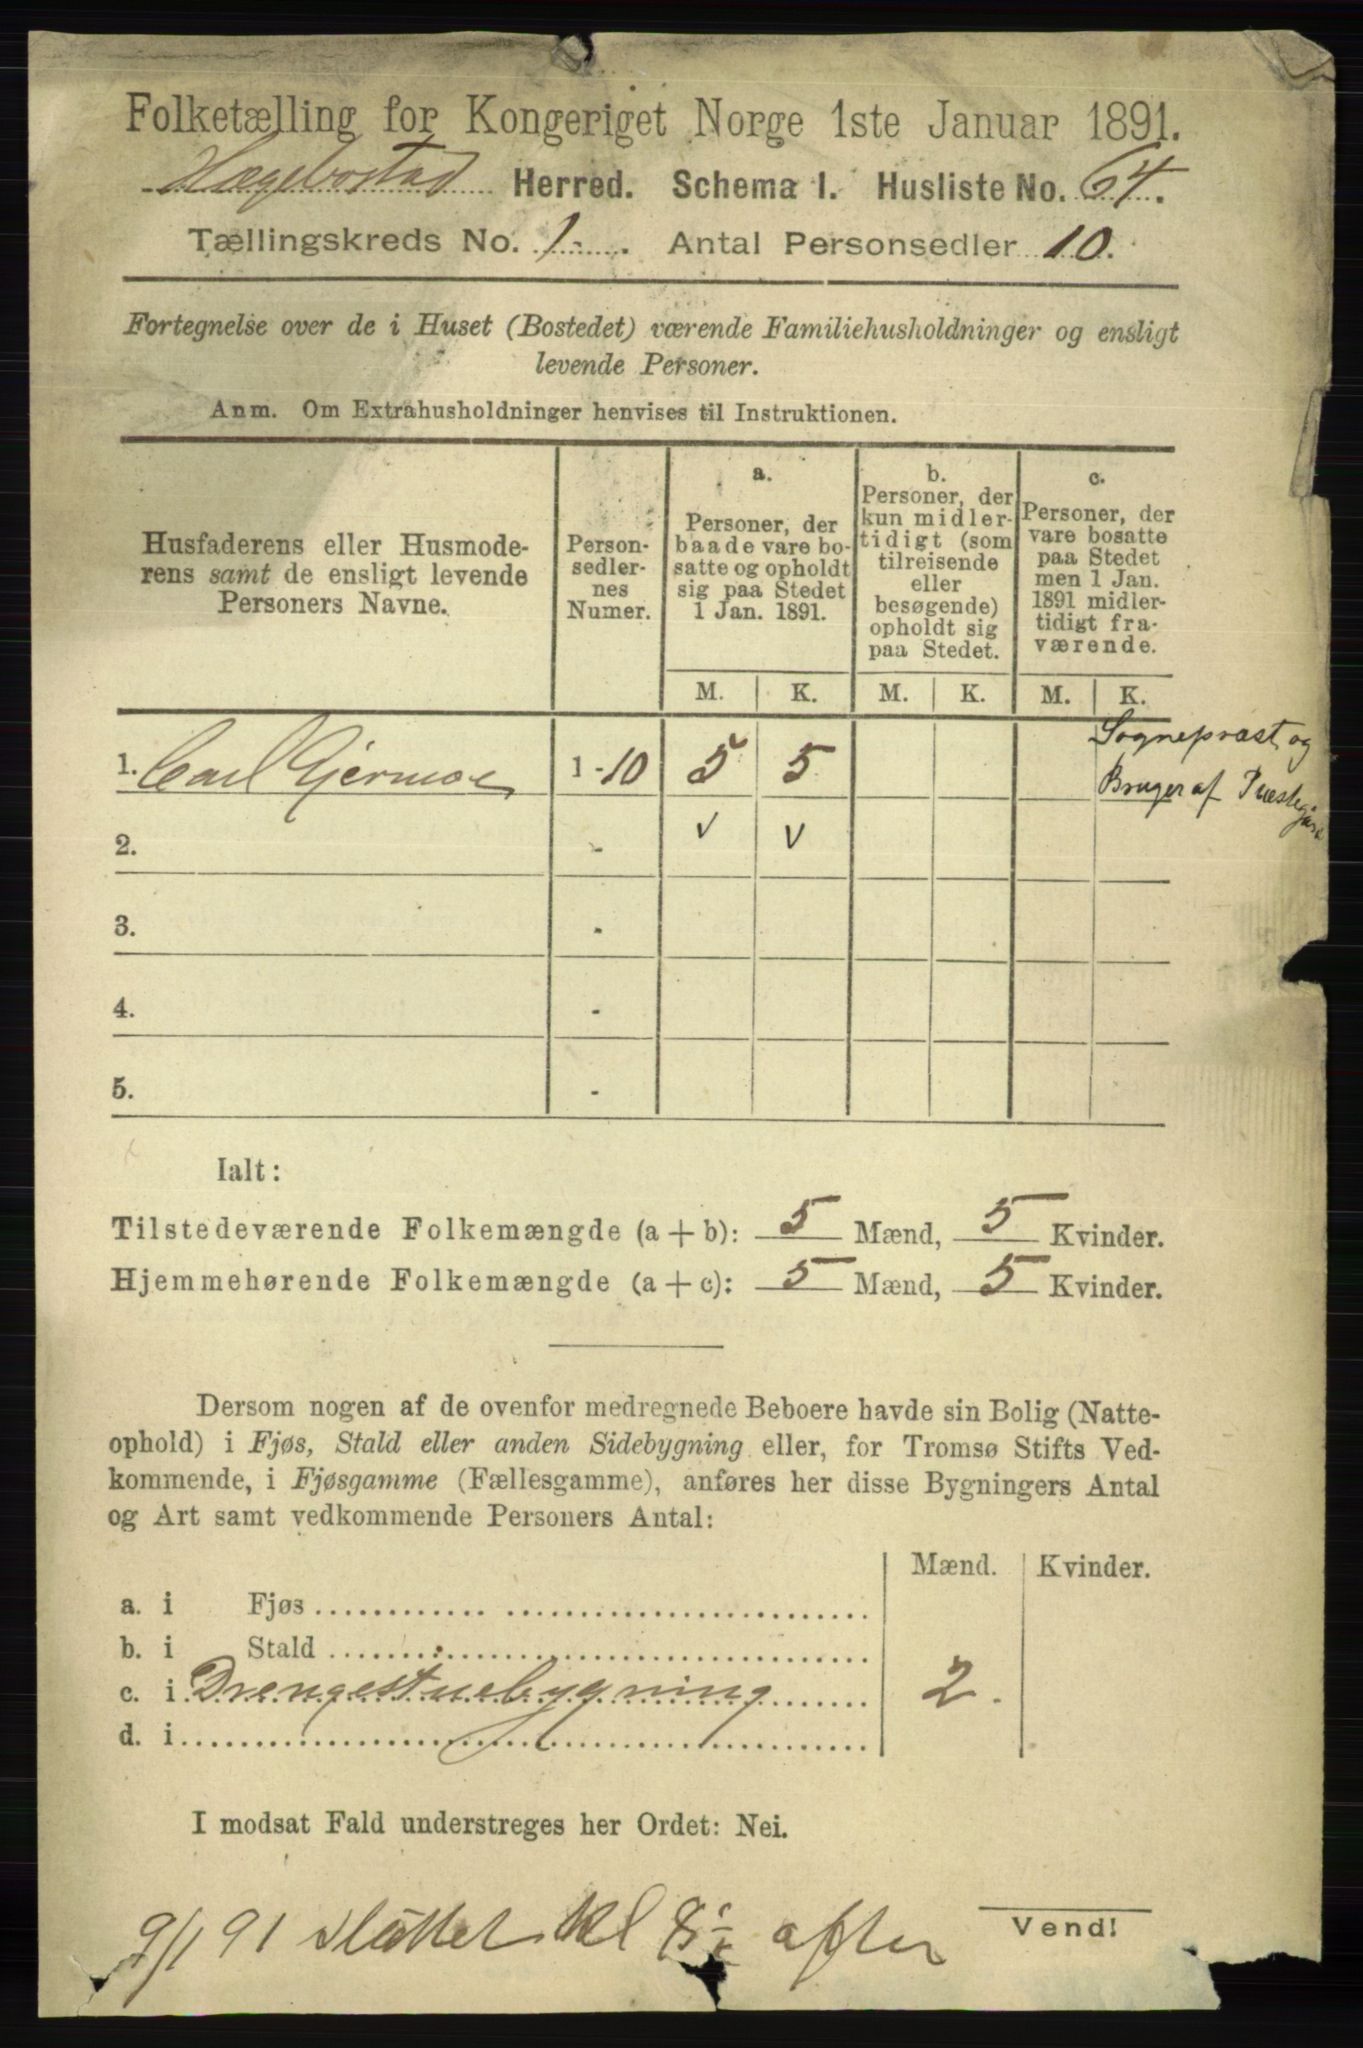 Folketælling for Kongeriget Norge 1ste Januar 1891.
Hægebostad Herred. Schema I. Husliste No. 64.
Tællingskreds No. 1. Antal Personsedler 10.
Fortegnelse over de i Huset (Bostedet) værende Familiehusholdninger og ensligt
levende Personer.
Anm. Om Extrahusholdninger henvises til Instruktionen.
Husfaderens eller Husmode-
rens samt de ensligt levende
Personers Navne.
Person-
sedler-
nes
Numer.
a.
Personer, der
baade vare bo-
satte og opholdt
sig paa Stedet
1 Jan. 1891.
b.
Personer, der
kun midler-
tidigt (som
tilreisende
eller
besøgende)
opholdt sig
paa Stedet.
c.
Personer, der
vare bosatte
paa Stedet
men 1 Jan.
1891 midler-
tidigt fra-
værende.
M. K. M. K. M. K.
1. Carl Gjermoe 1-10 5 5
Sognepræst og
Bruger af Præstegård
2. - v v
3. -
4. -
5. -
Ialt:
Tilstedeværende Folkemængde (a + b): 5 Mænd, 5 Kvinder.
Hjemmehørende Folkemængde (a + c): 5 Mænd, 5 Kvinder.
Dersom nogen af de ovenfor medregnede Beboere havde sin Bolig (Natte-
ophold) i Fjøs, Stald eller anden Sidebygning eller, for Tromsø Stifts Ved-
kommende, i Fjøsgamme (Fællesgamme), anføres her disse Bygningers Antal
og Art samt vedkommende Personers Antal:
Mænd. Kvinder.
a. i Fjøs
b. i Stald
c. i Drengestuebygning 2.
d. i
I modsat Fald understreges her Ordet: Nei.
9/1 91 Sluttet Kl 8 1/2 after
Vend!